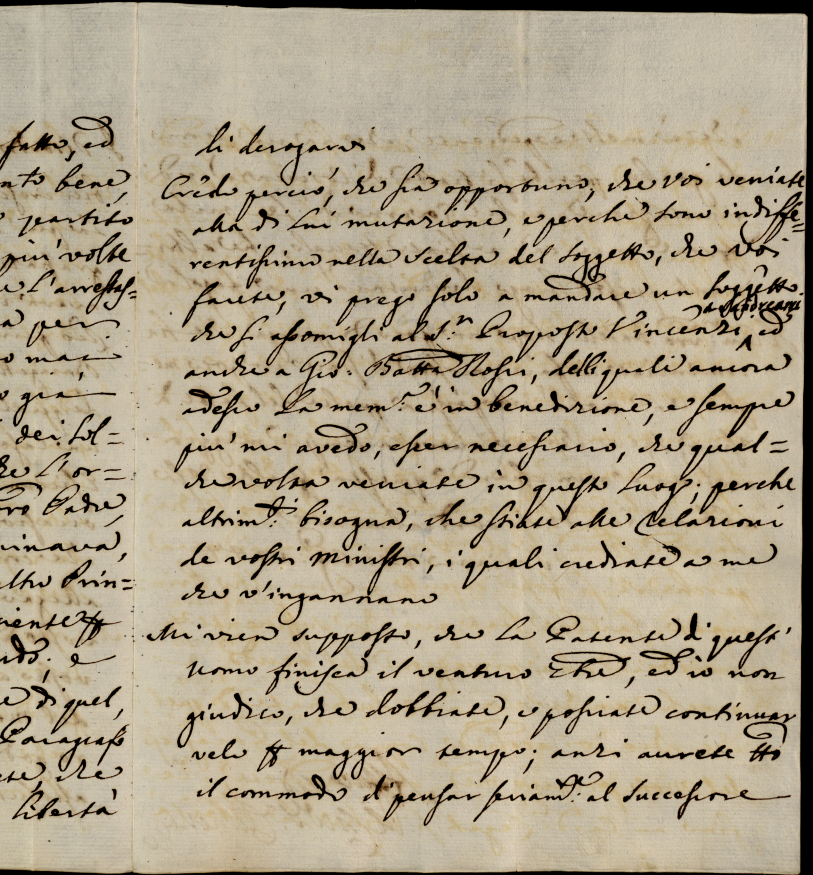 fatto, ed
nto bene,
partito
più volte
e l'arrestas=
a per
o mai
o già
dei sol=
he l'or=
ro Padre,
inava,
altro Prin=
niente
; e
e di quel,
Paragrafo
ete, che
libertà
di derogarvi
Credo perciò, che sia opportuno, che voi veniate
alla di lui mutazione, e perche sono indiffe=
rentissimo nella scelta del soggetto, che voi
farete, vi prego solo a mandare un soggetto
che si assomigli al S.r Proposto Vincenzi, ed
anche a Gio: Batta Rossi, delli quali ancora
adesso la mem.a è in benedizione, e sempre
più mi avedo, esser necessario, che qual=
che volta veniate in questo luogo; perche
altrim.ti bisogna, che stiate alle relazioni
de vostri ministri, i quali crediate a me
che v'ingannano
Mi vien supposto, che la Patente di quest'
uomo finisca il venturo, ed io non
giudico, che dobbiate, o possiate continuar
velo maggior tempo; anzi avrete tto
il commodo di pensar seriam.te al successore